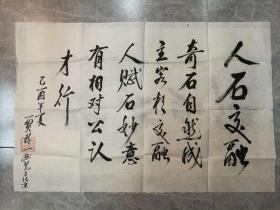 人石交融
奇石自然成
主客相交融
人赋石妙意
有相对公认
才行
乙酉年夏